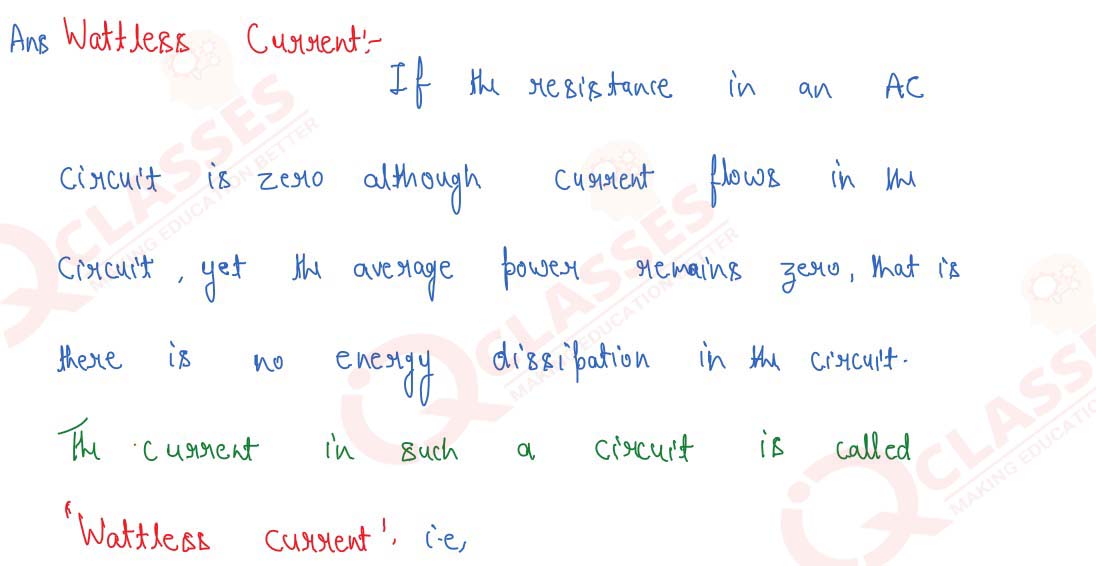 Ans Wattless Current:-
If the resistance in an AC
circuit is zero although current flows in the
circuit, yet the average power remains zero, that is
there is no energy dissipation in the circuit.
The current in such a circuit is called
"Wattless current'. i.e,
CLASSES
MAKING EDUCATION BETTER
CLASSES
MAKING EDUCATION BETTER
CLASSES
MAKING EDUCATION